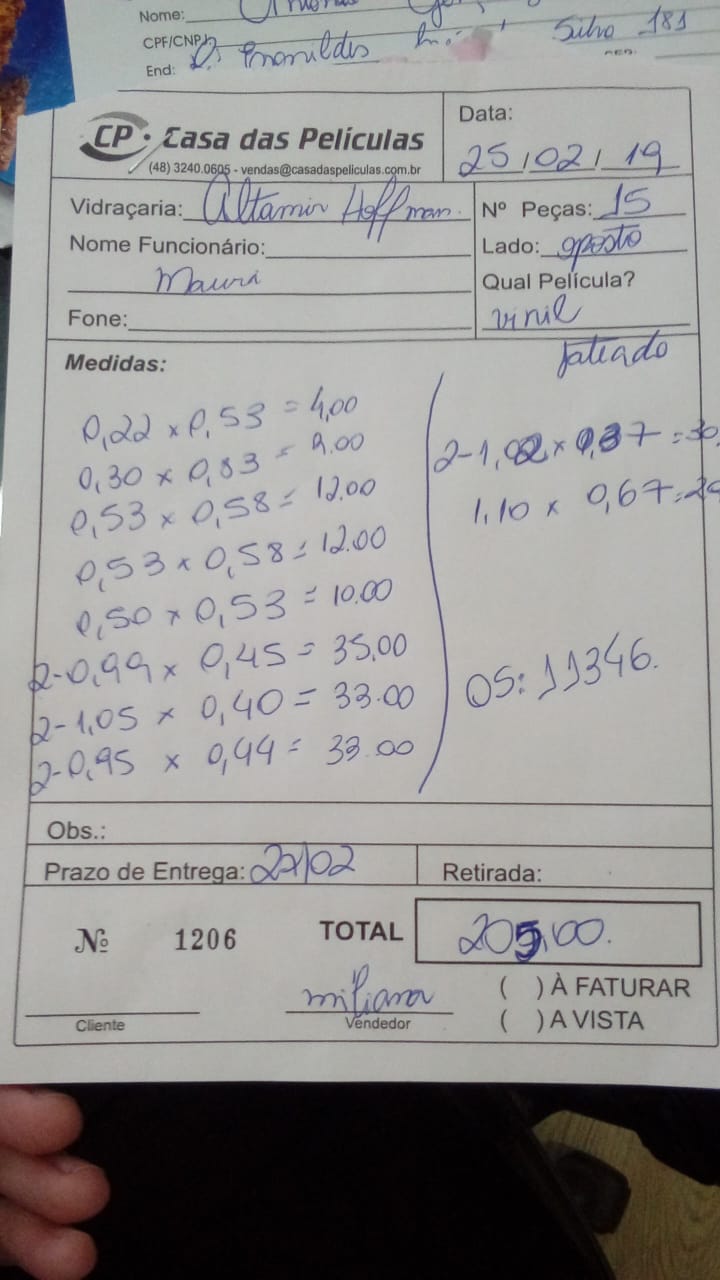 Nome:
CPF/CNPJ
End: Silva 181
CP. Casa das Películas
(48) 3240.0605 - vendas@casadaspeliculas.com.br
Data:
25/02/19
Vidraçaria: Altamir Hoffman.
Nº Peças: 15
Nome Funcionário:
Lado: oposto
Mauri
Qual Película?
Fone:
vinil
Jateado
Medidas:
0,22 x 0,53 = 4,00
0,30 x 0,83 = 9.00
0,53 x 0,58 = 12.00
0,53 x 0,58 = 12.00
0,50 x 0,53 = 10.00
2-0,99 x 0,45 = 35,00
2-1,05 x 0,40 = 33.00
2-0,95 x 0,44 = 33.00
1,10 x 0,67
OS: 11346.
Obs.:
Prazo de Entrega: 27/02
Retirada:
Nº 1206
TOTAL 205,00.
miliana
( ) À FATURAR
Cliente
Vendedor
( ) A VISTA